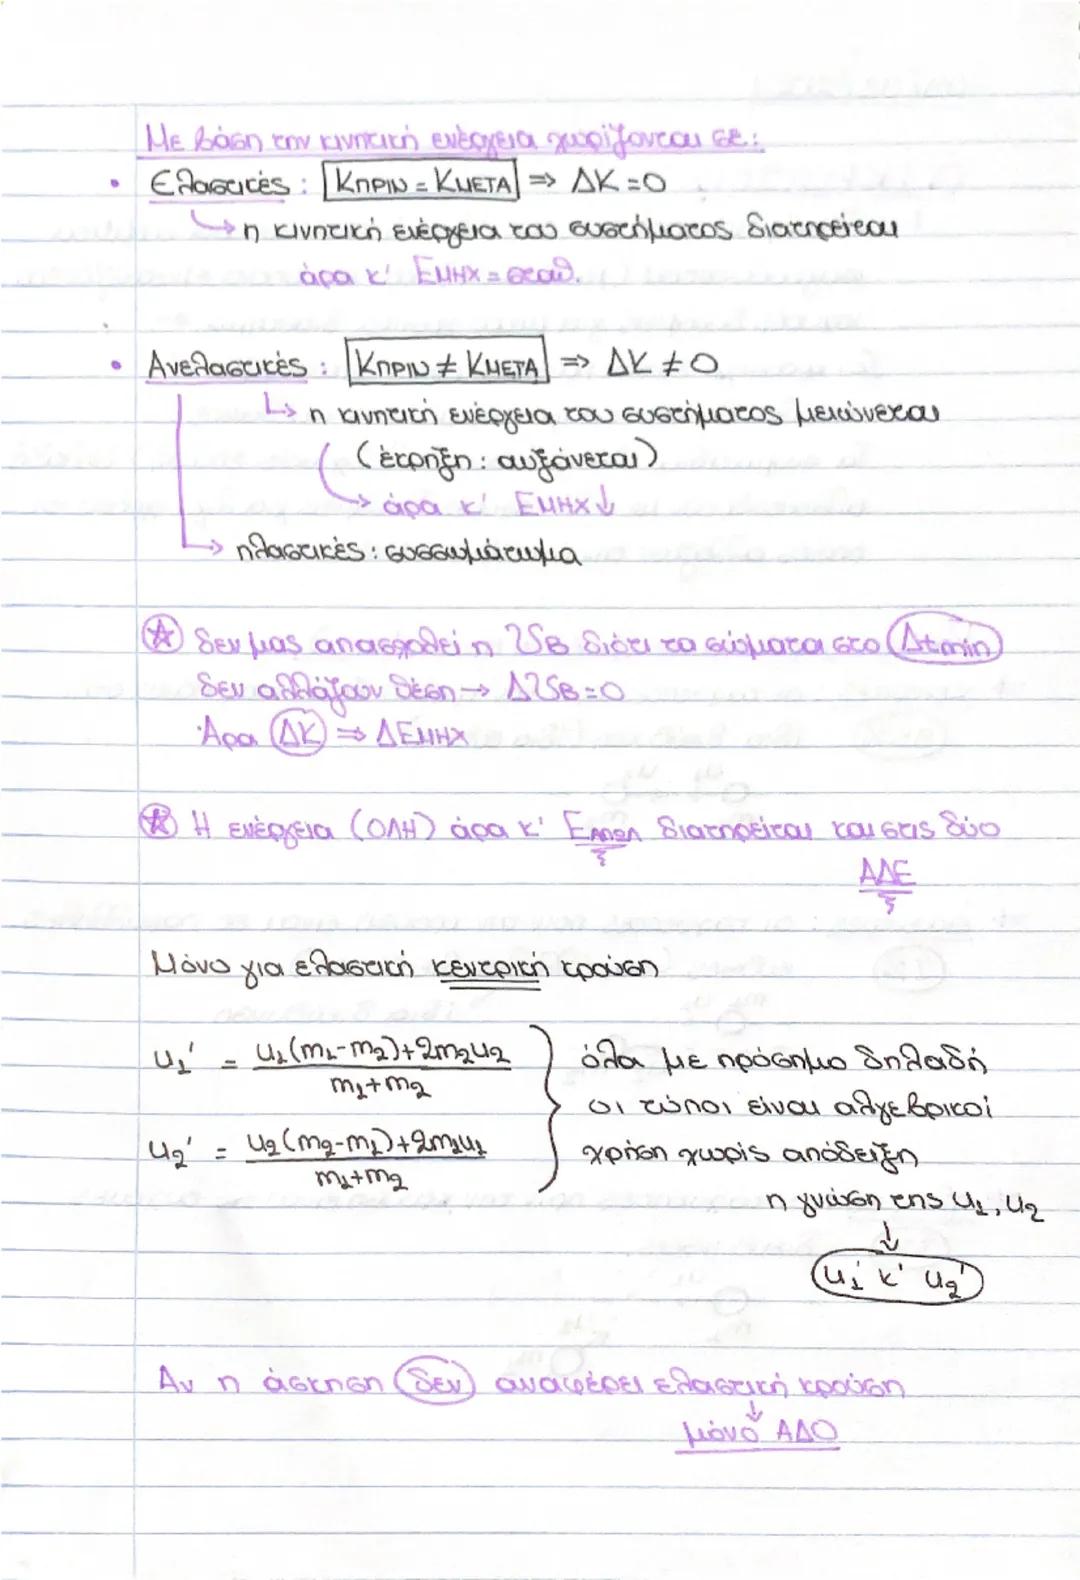 Με βάση την κινητική ενέργεια χωρίζονται σε:
• Ελαστικές : ΚΠΡΙΝ = ΚΜΕΤΑ ⇒ ΔΚ = 0
↳ η κινητική ενέργεια του συστήματος διατηρείται
άρα κ' ΕΜΗΧ = σταθ.
• Ανελαστικές : ΚΠΡΙΝ ≠ ΚΜΕΤΑ ⇒ ΔΚ ≠ 0
↳ η κινητική ενέργεια του συστήματος μειώνεται
(έκρηξη : αυξάνεται)
→ άρα κ' ΕΜΗΧ ↓
→ πλαστικές : συσσωμάτωμα
☆ δεν μας απασχολεί η UΒ διότι τα σώματα στο Δtmin
δεν αλλάζουν θέση → ΔUΒ = 0
Άρα ΔΚ ⇒ ΔΕΜΗΧ
☆ Η ενέργεια (ΟΛΗ) άρα κ' διατηρείται και στις δύο
ΑΔΕ
Μόνο για ελαστική κεντρική κρούση
u₁' = u₁(m₁-m₂)+2m₂u₂ / m₁+m₂
u₂' = u₂(m₂-m₁)+2m₁u₁ / m₁+m₂
όλα με πρόσημο δηλαδή
οι τύποι είναι αλγεβρικοί
χρήση χωρίς απόδειξη
η γνώση της u₁, u₂
↓
u₁' κ' u₂'
Αν η άσκηση δεν αναφέρει ελαστική κρούση
↓
μόνο ΑΔΟ